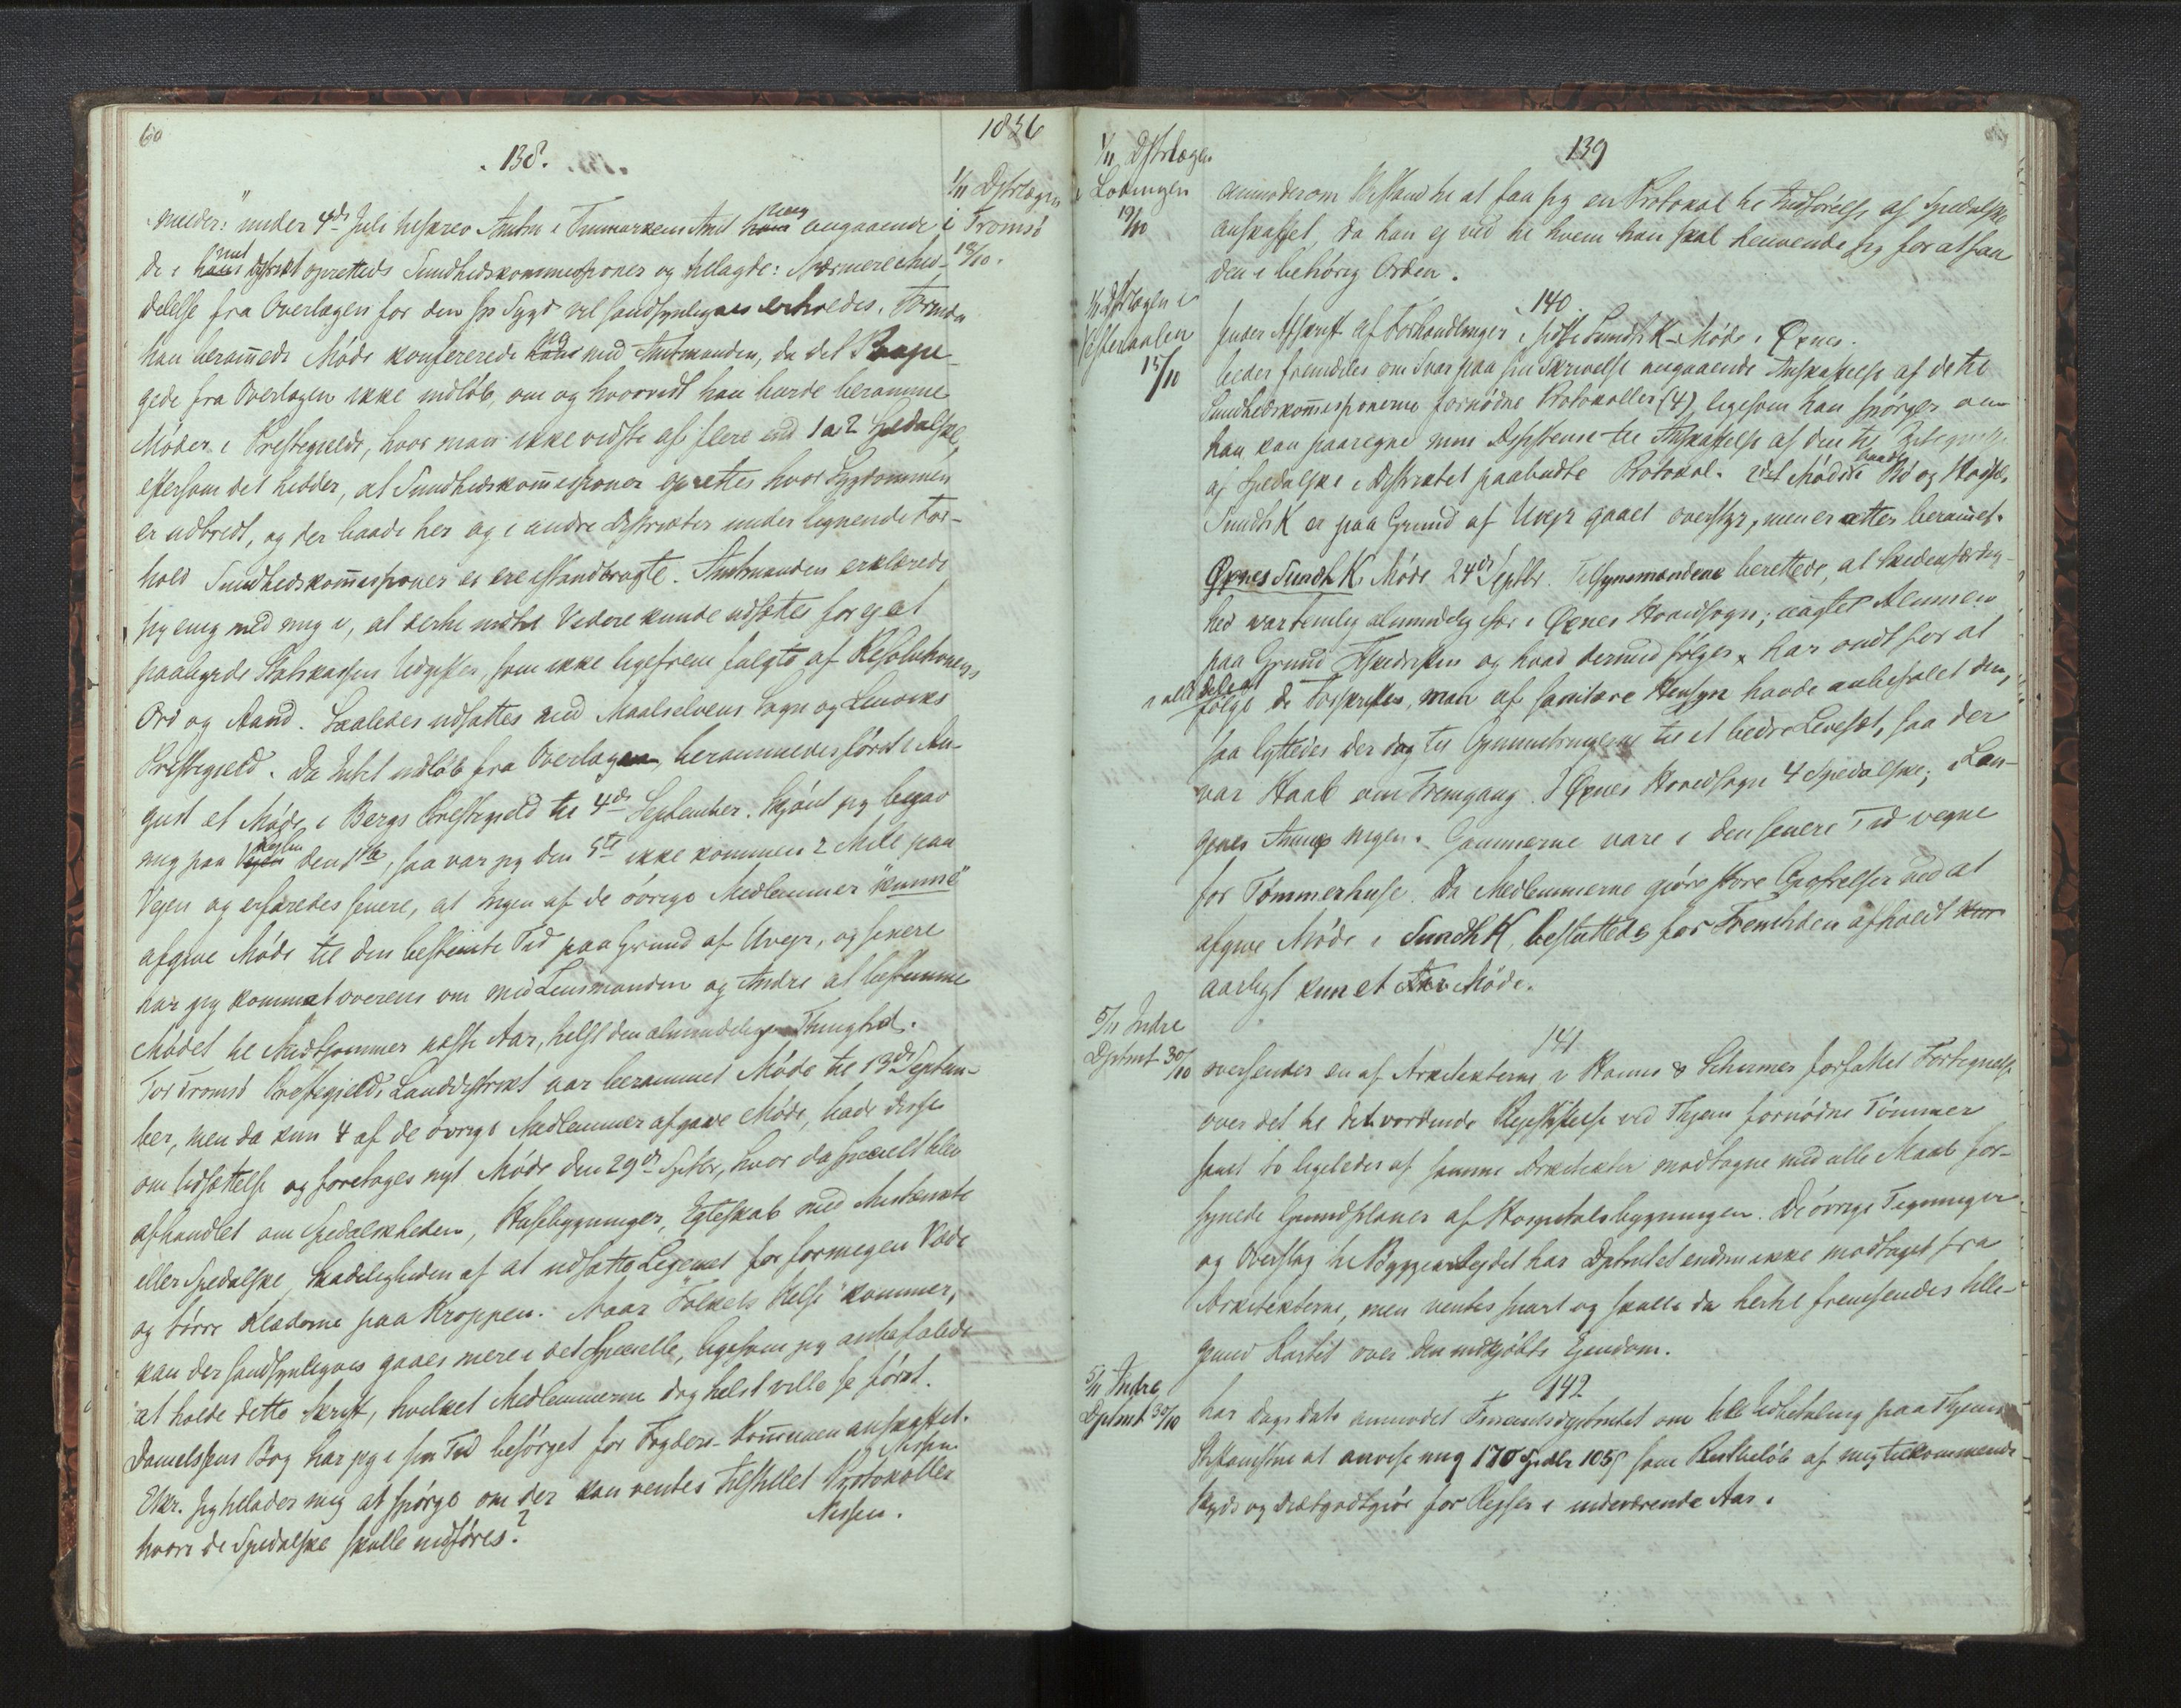 60
1856
138.
1/11 Dstrlægen
i Tromsö
18/10.
melder: "under 4de Juli tilskrev Amtm i Finmarkens Amt mig angaaende
de i mit Distrikt oprettede Sundhedskommissioner og tillagde: Nærmere Med-
delelse fra Overlægen for den sp Sygd vil sandsynligvis erholdes. Förinden
han berammede Möde konfererede jeg med Amtmanden, da det
gede fra Overlægen ikke indlöb, om og hvorvidt han burde beramme
Möder i Prestegjelde, hvor man ikke vidste af flere end 1 a 2 Spedalske,
eftersom det hedder, at Sundhedskommissioner oprettes hvor Sygdommen
er udbredt, og der baade her og i andre Distrikter under lignende For-
hold Sundhedskommissioner ei ere istandbragte. Amtmanden erklærede
sig enig med mig i, at dertil indtil Videre kunde udsættes for ej at
paabyrde Statskassen Udgifter, som ikke ligefrem fulgte af Resolutionens
Ord og Aand. Saaledes udsattes med Maalselvens Sogn og Lenviks
Prestegjeld. Da Intet indlöb fra Overlægen, berammedes först i Au-
gust et Möde i Bergs Prestegjeld til 4de September. Skjönt jeg begav
mig paa Rejsen den 1ste, saa var jeg den 5te ikke kommen 2 Mile paa
Vejen og erfaredes senere, at Ingen af de övrige Medlemmer "kunne"
afgive Möde til den bestemte Tid paa Grund af Uvejr, og senere
har jeg kommet overens om med Lensmanden og Andre at bestemme
Mödet til Midtsommer næste Aar, helst den almindelige Thingtid.
For Tromsö Prestegjelds Landdistrikt var berammet Möde til 13de Septem-
ber, men da kun 4 af de övrige Medlemmer afgave Möde, bade disse
om Udsættelse og foretoges nyt Möde den 29de Septbr, hvor da specielt blev
afhandlet om Spedalskheden, Husebygninger, Egteskab med Mistænkte
eller Spedalske, Skadeligheden af at udsætte Legemet for formegen Væde
og törre Klæderne paa Kroppen. Naar "Folkets Helse" kommer,
kan der sandsynligvis gaaes mere i det Specielle, ligesom jeg anbefalede
at holde dette Skrift, hvilket Medlemmerne dog helst ville se först.
Danielssens Bog har jeg i sin Tid besörget for Fogderi-Kommunen anskaffet.
Ellr. Jeg tillader mig at spörge om der kan ventes tilstillet Protokoller
hvori de Spedalske skulle indföres?
Nissen.
139
1/11 Dstrlægen
i Lodingen
19/10
anmoder om Bistand til at faa sig en Protokol til Indförelse af Spedalske
anskaffet, da han ej ved til hvem han skal henvende sig for at faa
den i behörig Orden.
140
1/11 Dstrlægen i
Vesteraalen
15/10
sender Afskrift af Forhandlinger i sidste Sundh K-Möde i Öxnes.
beder fremdeles om Svar paa sin Skrivelse angaaende Anskaffelse af de til
Sundhedskommissionerne fornödne Protokoller (4), ligesom han spörger om
han kan paaregne min Assistence til Anskaffelse af den til Optegnelse
af Spedalske i Distriktet paabudte Protokol. Et Möde i Bö og Hadsel
Sundh K er paa Grund af Uvejr gaaet overstyr, men er atter berammet.
Öxnes Sundh K. Möde 24de Septbr. Tilsynsmændene berettede, at Skedensfærdig-
hed var temlig almindelig især i Öxnes Hovedsogn; uagtet Almuen
paa Grund Fiskedriften og hvad dermed fölger har ondt for at
i alle Dele at fölge de Forskrifter, man af sanitære Hensyn havde anbefalet dem,
saa lyttedes der dog til Opmuntringerne til et bedre Levesæt, saa der
var Haab om Fremgang. I Öxnes Hovedsogn 4 Spedalske; i Lan-
genes Annex ingen. Gammerne vare i den senere Tid vegne
for Tömmerhuse. Da Medlemmerne gjöre store Opofrelser ved at
afgive Möde i Sundh K, besluttedes for Fremtiden afholdt
aarligt kun et Möde.
141
5/11 Indre
Dptmt 30/10
oversender en af Arkitekterne v Hanno & Schirmer forfattet Fortegnelse
over det til det vordende Plejestiftelse ved Thjem fornödne Tömmer
samt to ligeledes af samme Arkitekter modtagne med alle Maal for-
synede Grundplaner af Hospitalsbygningen. De övrige Tegninger
og Overslag til Byggearbejdet har Dptmtet endnu ikke modtaget fra
Arkitekterne, men ventes snart og skulle da hertil fremsendes tilli-
gemed Kartet over den indkjöbte Ejendom.
142
5/11 Indre
Dptmt 30/10
har Dags Dato anmodet Finantsdeptmtet om lade Udbetaling paa Thjems
Stiftamtstue at anvise mig 170 Spdlr 105 s som Restbelöb af mig tilkommende
Skyds og Diætgodtgjör for Rejser i indeværende Aar.